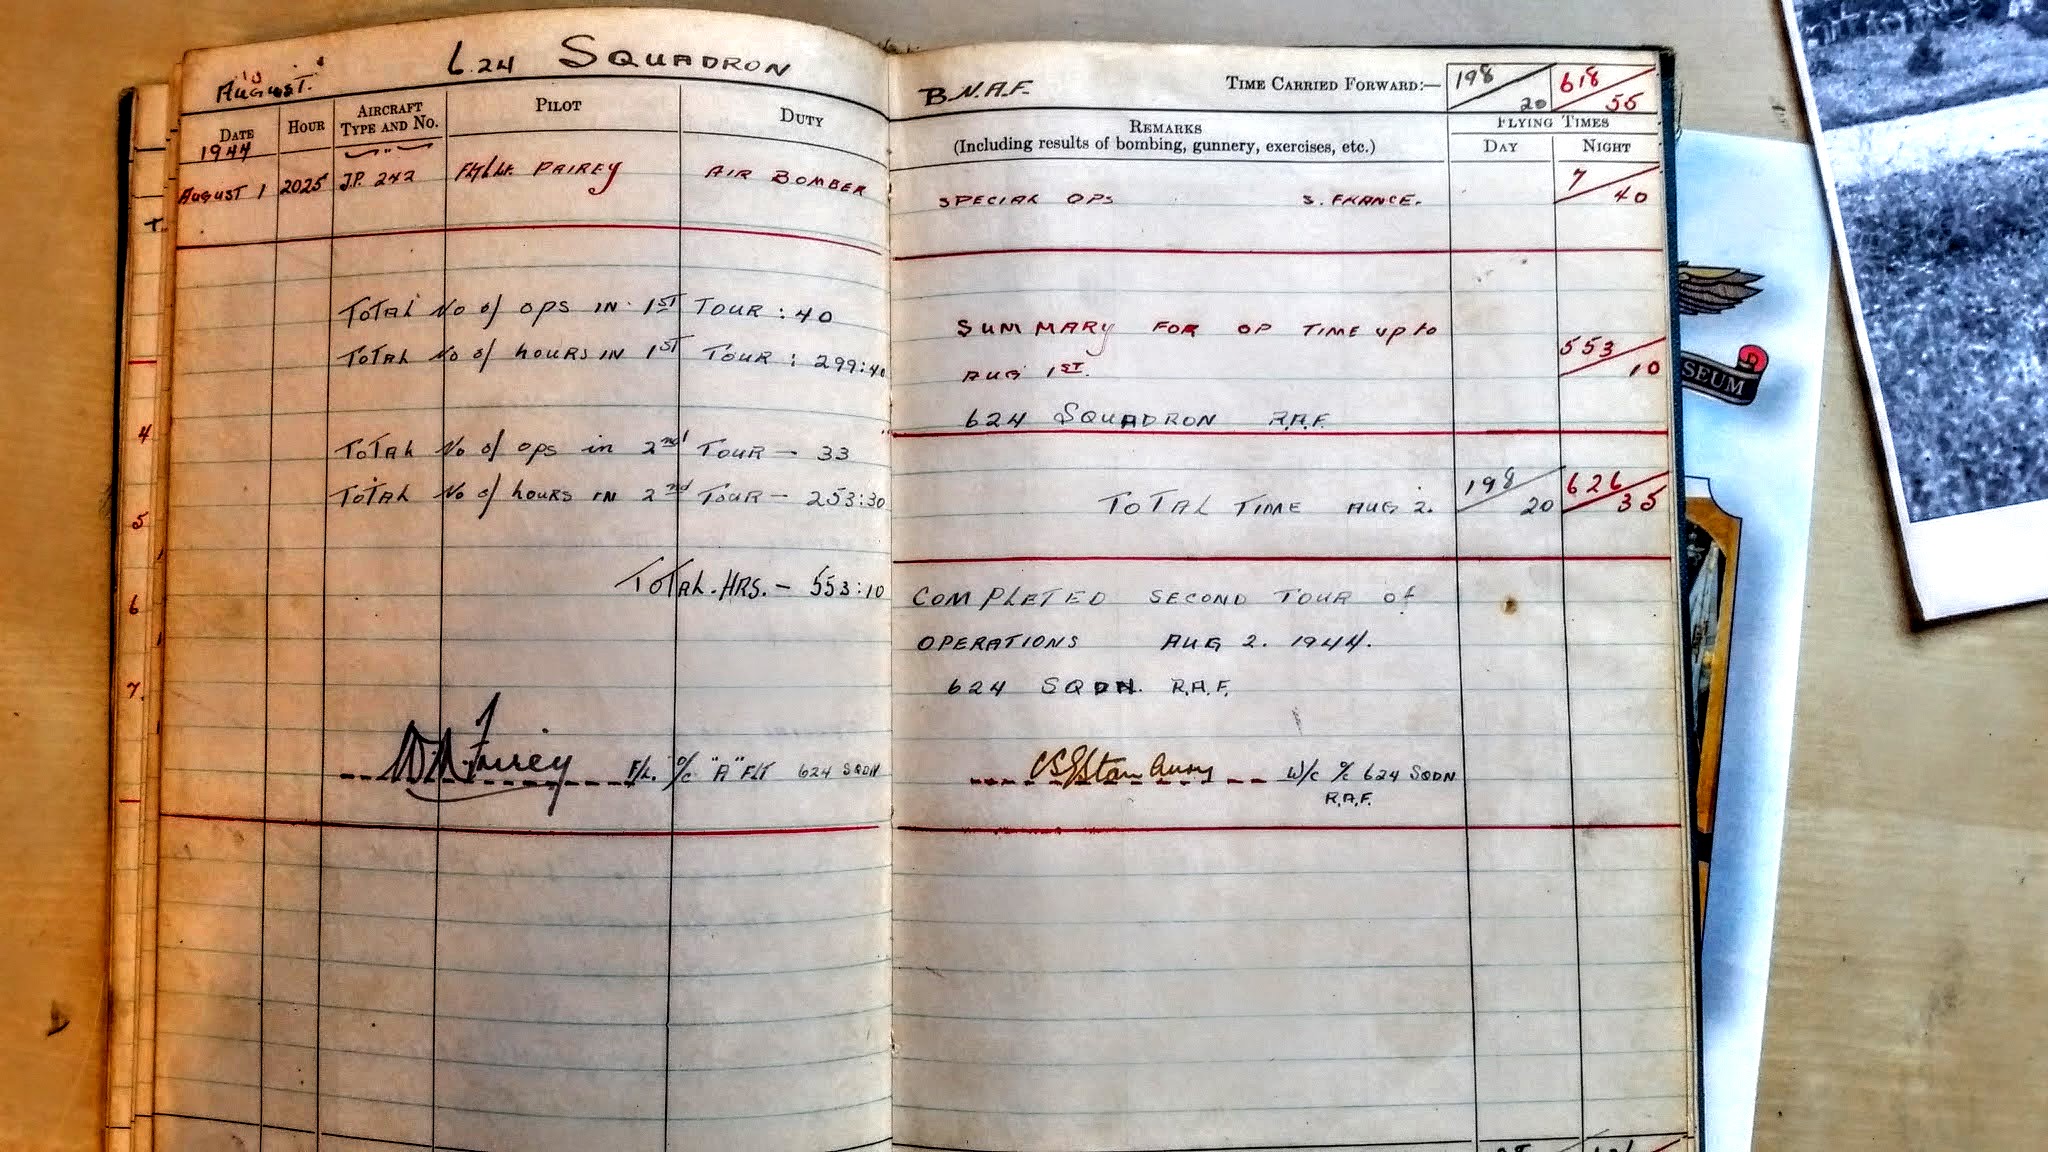 624 SQUADRON
AUGUST.
B.N.A.F.
TIME CARRIED FORWARD:—
198 20
618 55
DATE
1944
HOUR
AIRCRAFT
TYPE AND NO.
PILOT
DUTY
REMARKS
(Including results of bombing, gunnery, exercises, etc.)
FLYING TIMES
DAY
NIGHT
AUGUST 1 2025 J.P. 242 FAIREY AIR BOMBER SPECIAL OPS S. FRANCE. 7 40
TOTAL No of OPS IN 1ST TOUR : 40
TOTAL No of HOURS IN 1ST TOUR : 299:40
SUMMARY FOR OP TIME up to
AUG 1ST.
553 10
624 SQUADRON R.A.F.
TOTAL No of OPS in 2nd TOUR — 33
TOTAL No of HOURS IN 2nd TOUR — 253:30
TOTAL TIME AUG 2. 198 20 626 35
TOTAL. HRS. — 553:10
COMPLETED SECOND TOUR of
OPERATIONS AUG 2. 1944.
624 SQDN. R.A.F.
Fairey F/L. O/C "A" FLT 624 SQDN
W/C O/C 624 SQDN
R.A.F.
4
5
6
7.
SEUM